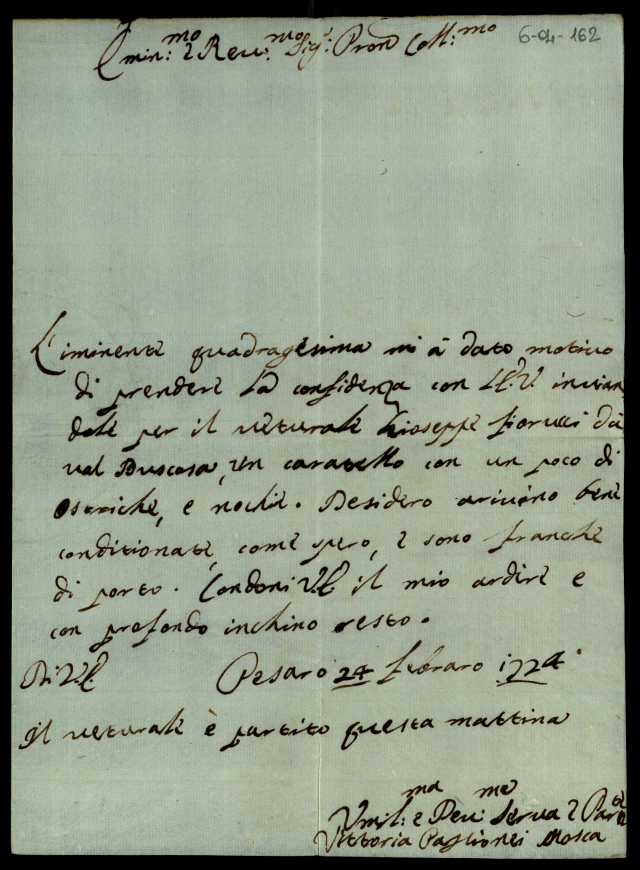 6-04-162
Emin:mo e Reu:mo Sig: Pron Coll:mo
L'iminente quadragesima mi à dato motiuo
di prendere la confidenza con l'E.V. inuian
dole per il ueturale Gioseppe fiorucci da
ual Buscosa, un caratello con un poco di
ostriche, e nochie. Desidero ariuino bene
conditionate, come spero, e sono franche
di porto. Condoni V.E. il mio ardire e
con profondo inchino resto.
Di V.E. Pesaro 24 febraro 1724
Il ueturale è partito questa mattina
Vmil:ma e Deu:me Serua e
Vittoria Paglionei Mosca